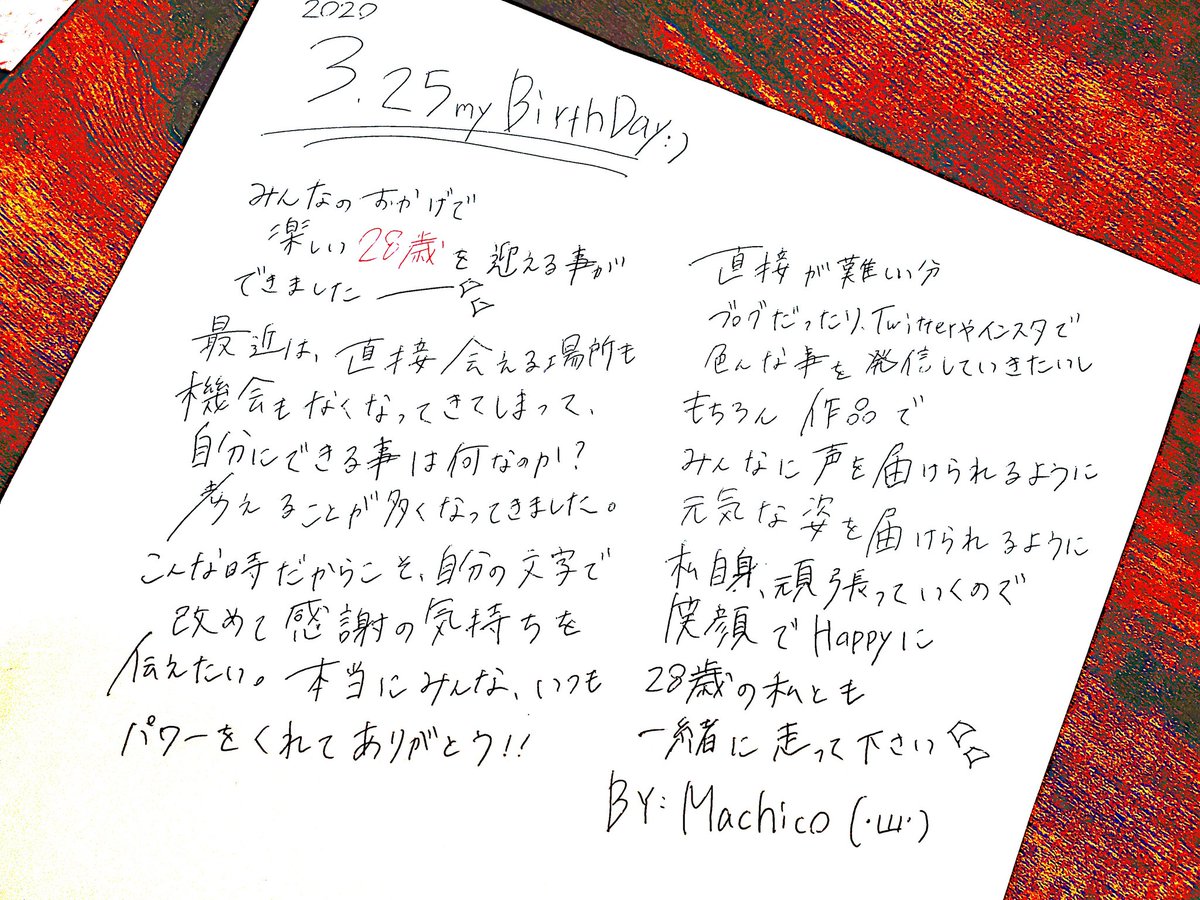 2020
3.25 my BirthDay:)
みんなのおかげで
楽しい28歳を迎える事が
できました
最近は、直接会える場所も
機会もなくなってきてしまって、
自分にできる事は何なのか?
考えることが多くなってきました。
こんな時だからこそ、自分の文字で
改めて感謝の気持ちを
伝えたい。本当にみんな、いつも
パワーをくれてありがとう!!
直接が難しい分
ブログだったり、Twitterやインスタで
色んな事を発信していきたいし
もちろん作品で
みんなに声を届けられるように
元気な姿を届けられるように
私自身、頑張っていくので
笑顔でHappyに
28歳の私とも
一緒に走って下さい
BY: Machico (·ш·)